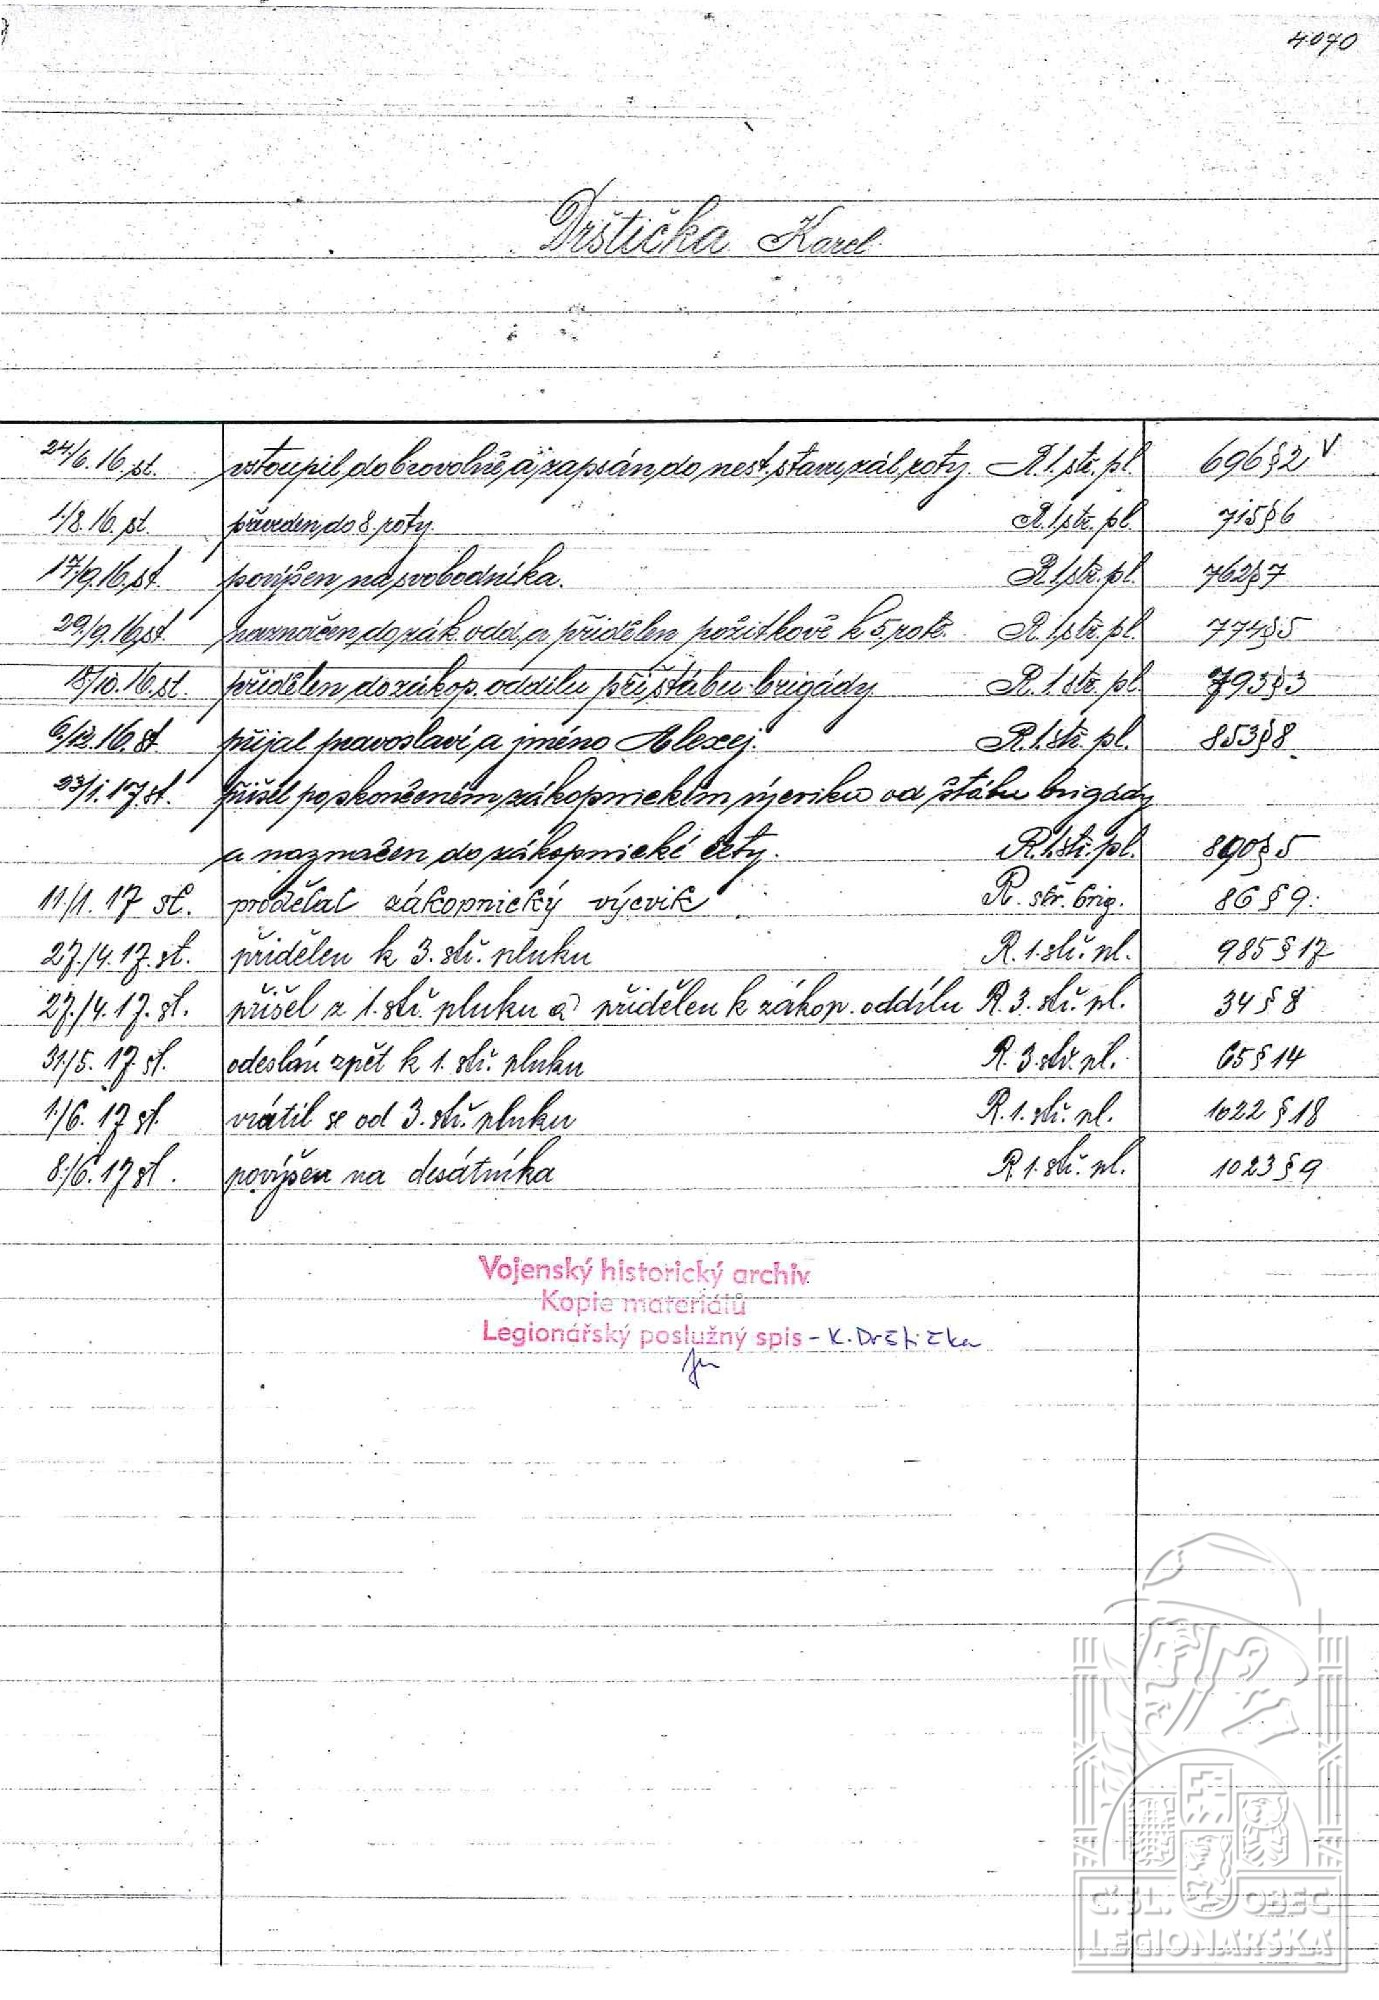 4070
Drštička Karel
24/6.16.st. vstoupil dobrovolně a zapsán do nest. stavu zál. roty. R. 1. stř. pl. 696 § 2 V
1./8.16.st. převeden do 8. roty. R. 1. stř. pl. 715 § 6
17/9.16.st. povýšen na svobodníka. R. 1. stř. pl. 762 § 7
29/9.16.st. naznačen do zák. odd. a přidělen požitkově k 5. rotě. R. 1. stř. pl. 774 § 5
18/10.16.st. přidělen do zákop. oddílu při štábu brigády R. 1. stř. pl. 793 § 3
6/12.16.st přijal pravoslaví a jméno Alexej. R. 1. stř. pl. 853 § 8
23/1.17.st. přišel po skončeném zákopnickém výcviku od štábu brigády
a naznačen do zákopnické čety. R. 1. stř. pl. 890 § 5
11/1.17 st. prodělal zákopnický výcvik R. stř. brig. 86 § 9.
27./4.17.st. přidělen k 3. stř. pluku R. 1. stř. pl. 985 § 17
27./4.17.st. přišel z 1. stř. pluku a přidělen k zákop. oddílu R. 3. stř. pl. 34 § 8
31./5.17.st. odeslán zpět k 1. stř. pluku R. 3. stř. pl. 65 § 14
1./6.17 st. vrátil se od 3. stř. pluku R. 1. stř. pl. 1022 § 18
8./6.17 st. povýšen na desátníka R. 1. stř. pl. 1023 § 9
Vojenský historický archiv
Kopie materiálů
Legionářský poslužný spis - K. Drštička
Č'SL. OBEC
LEGIONÁŘSKÁ